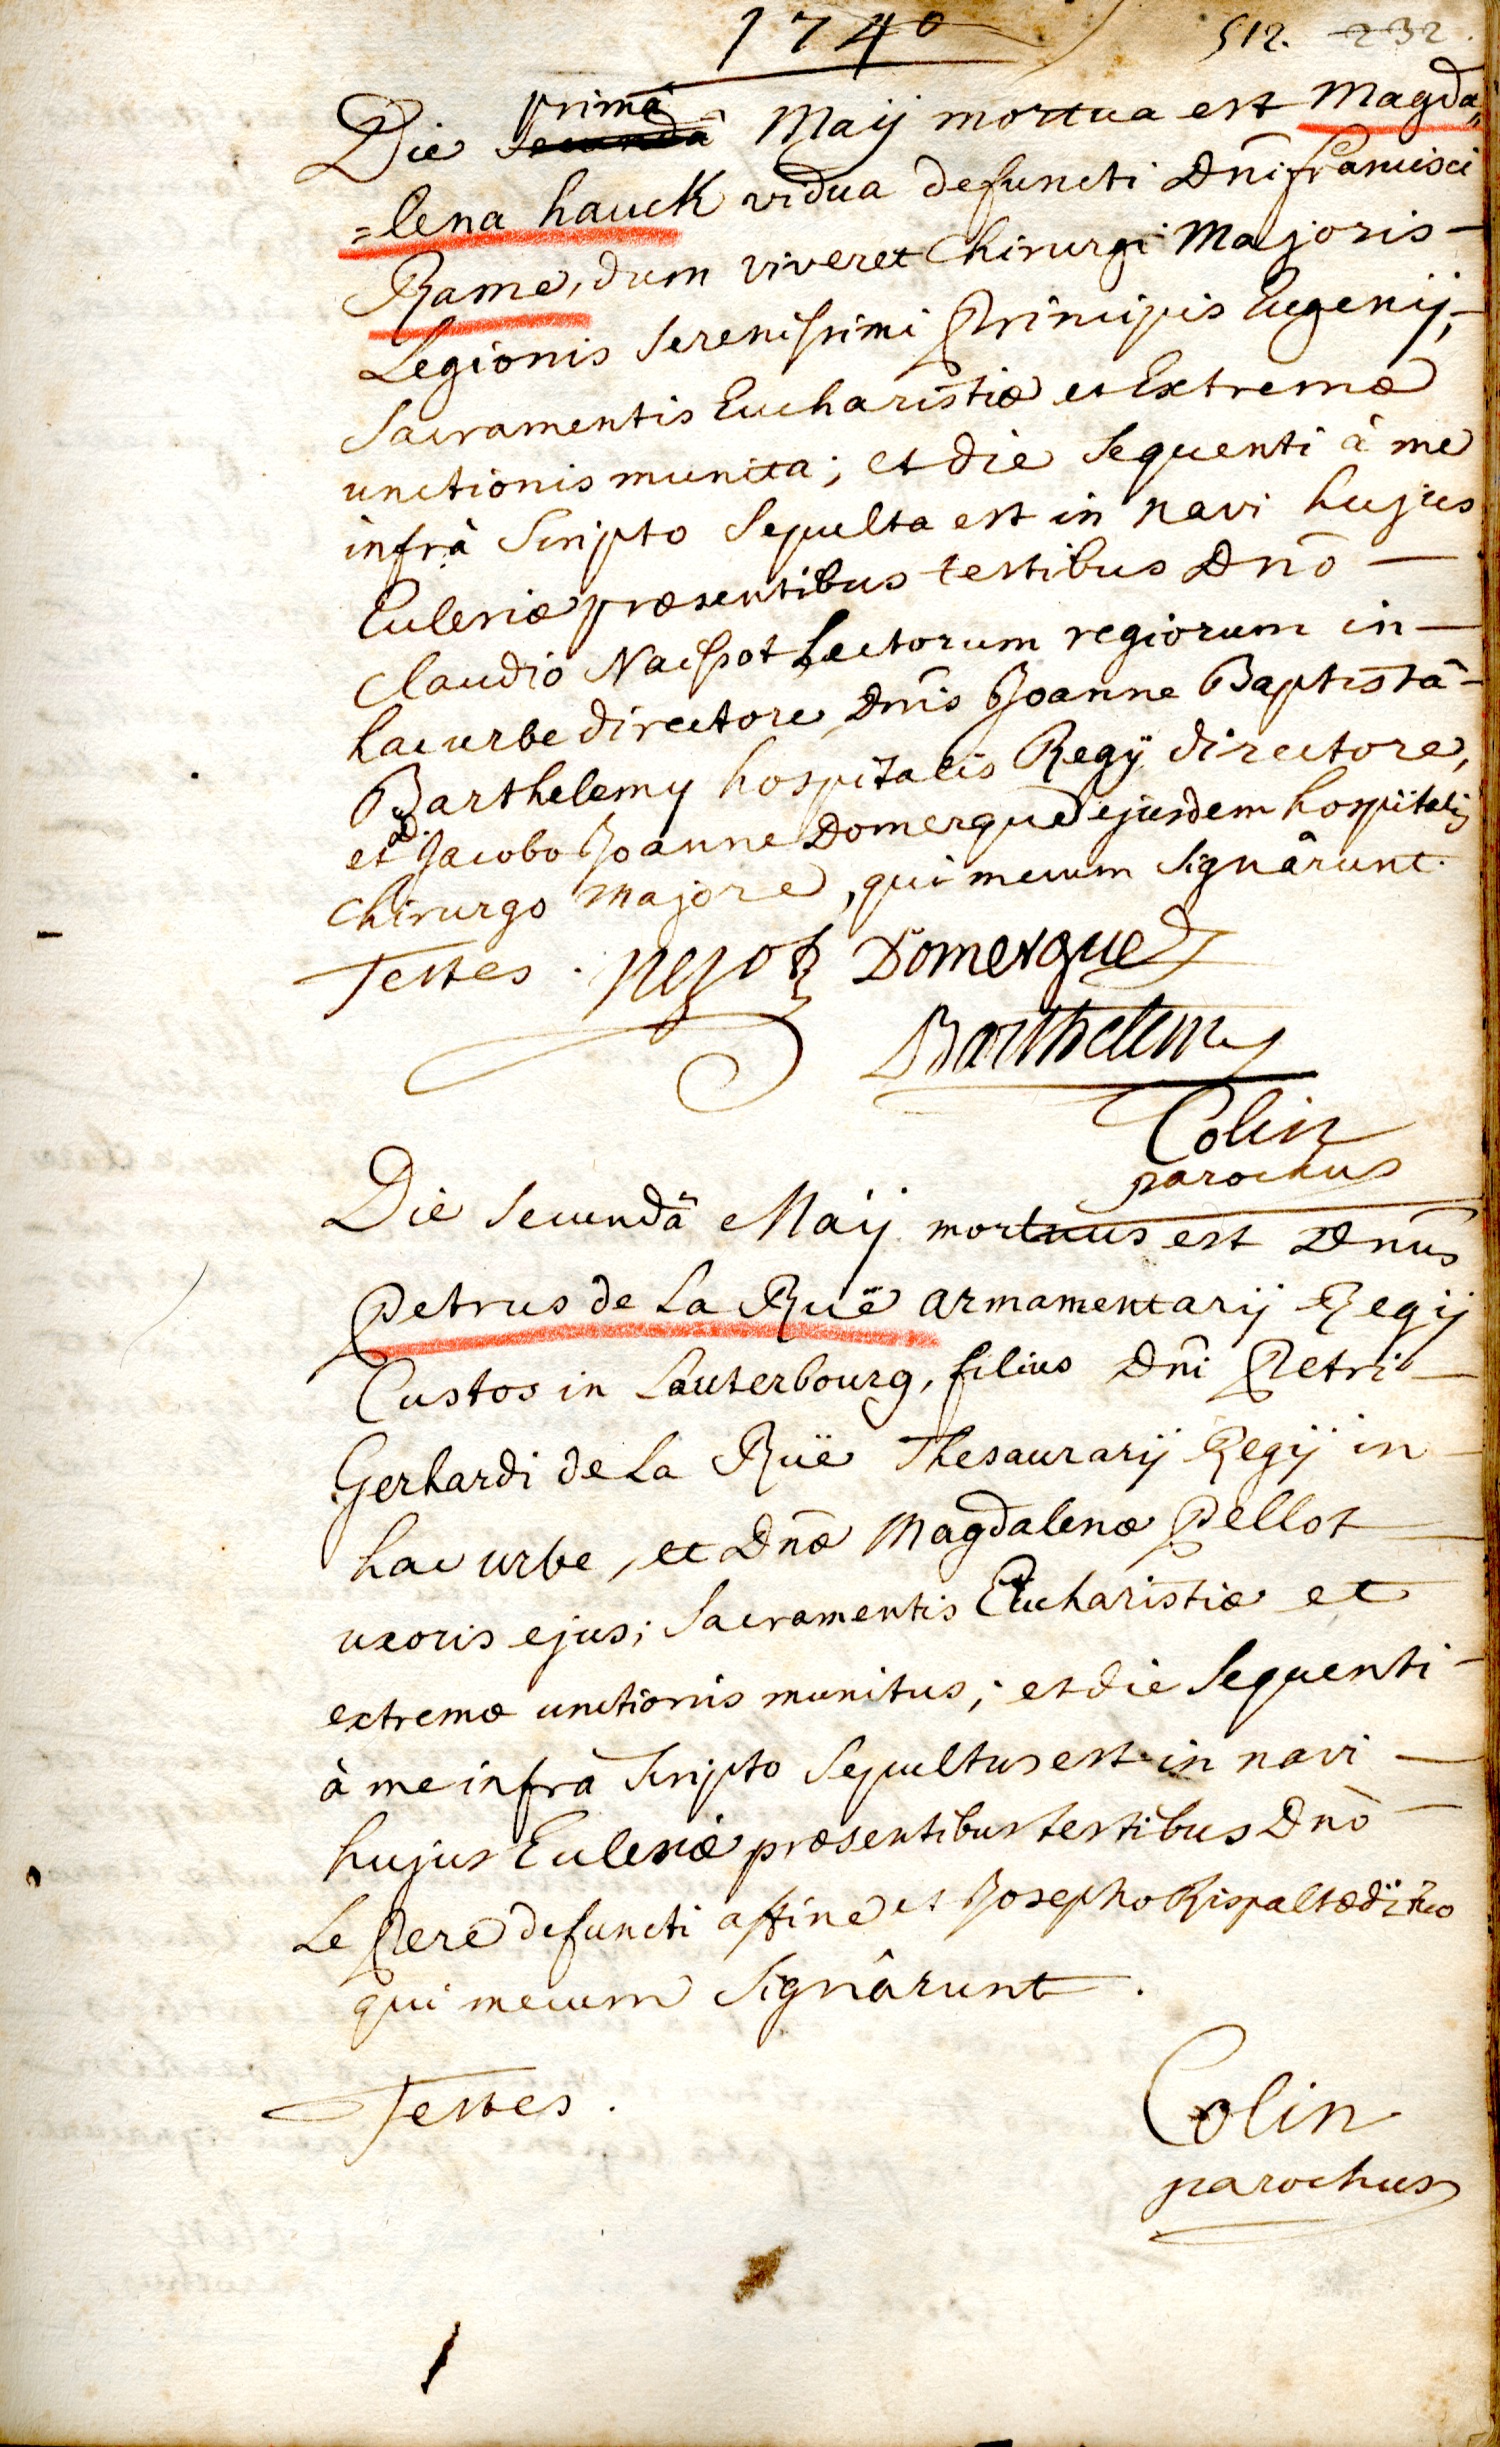 1740
512. 232.
primâ
Die secundâ Maij mortua est Magda„
=lena hauck vidua defuncti Dni francisci
Rame, dum viveret Chirurgi Majoris –
Legionis Serenissimi Principis Eugenij, –
Sacramentis Eucharistiæ et Extremæ
unctionis munita; et die sequenti à me
infrà Scripto Sepulta est in navi hujus
Ecclesiæ præsentibus testibus Dnō —
Claudio Lectorum regiorum in —
hac urbe directore, Dnis Joanne Baptistâ –
Barthelemy hospitalis Regij directore,
et D. Jacobo Joanne Domergue ejusdem hospitalis
Chirurgo majore, qui mecum signârunt.
Testes. Domergue
Barthelemy
Colin
parochus
Die Secundâ Maij mortuus est Dnūs
Petrus de La Ruë armamentarij Regij
Custos in Lauterbourg, filius Dni Petri –
Gerhardi de La Ruë Thesaurarij Regij in –
hac urbe, et Dnæ Magdalenæ Pellot —
uxoris ejus; Sacramentis Eucharistiæ et
extremæ unctionis munitus; et die Sequenti –
à me infrà Scripto Sepultus est in navi —
hujus Ecclesiæ præsentibus testibus Dnō —
Le Pere defuncti affine et Josepho Rispalt ædituo
qui mecum Signârunt.
Testes.
Colin
parochus